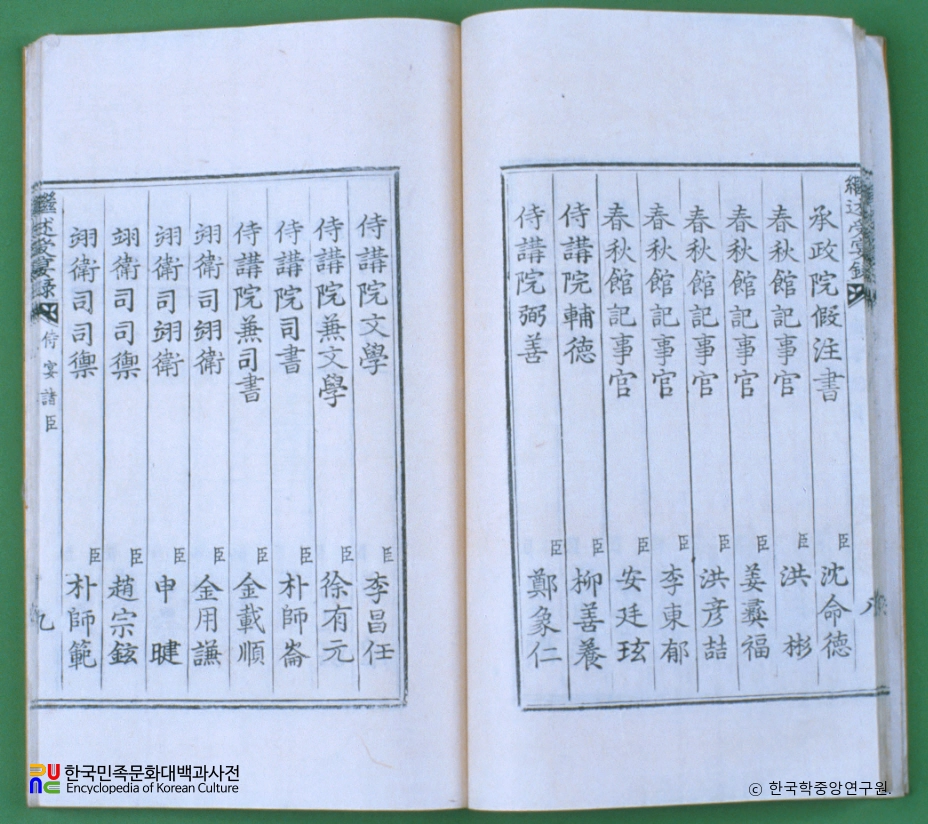 繼述受宴錄
承政院假注書 臣 沈命德
春秋館記事官 臣 洪 彬
春秋館記事官 臣 姜彝福
春秋館記事官 臣 洪彦喆
春秋館記事官 臣 李東郁
春秋館記事官 臣 安廷玹
侍講院輔德 臣 柳善養
侍講院弼善 臣 鄭象仁
侍講院文學 臣 李昌任
侍講院兼文學 臣 徐有元
侍講院司書 臣 朴師崙
侍講院兼司書 臣 金載順
翊衛司翊衛 臣 金用謙
翊衛司翊衛 臣 申 暥
翊衛司司禦 臣 趙宗鉉
翊衛司司禦 臣 朴師範
繼述受宴錄 侍宴諸臣 九
한국민족문화대백과사전
Encyclopedia of Korean Culture
© 한국학중앙연구원.